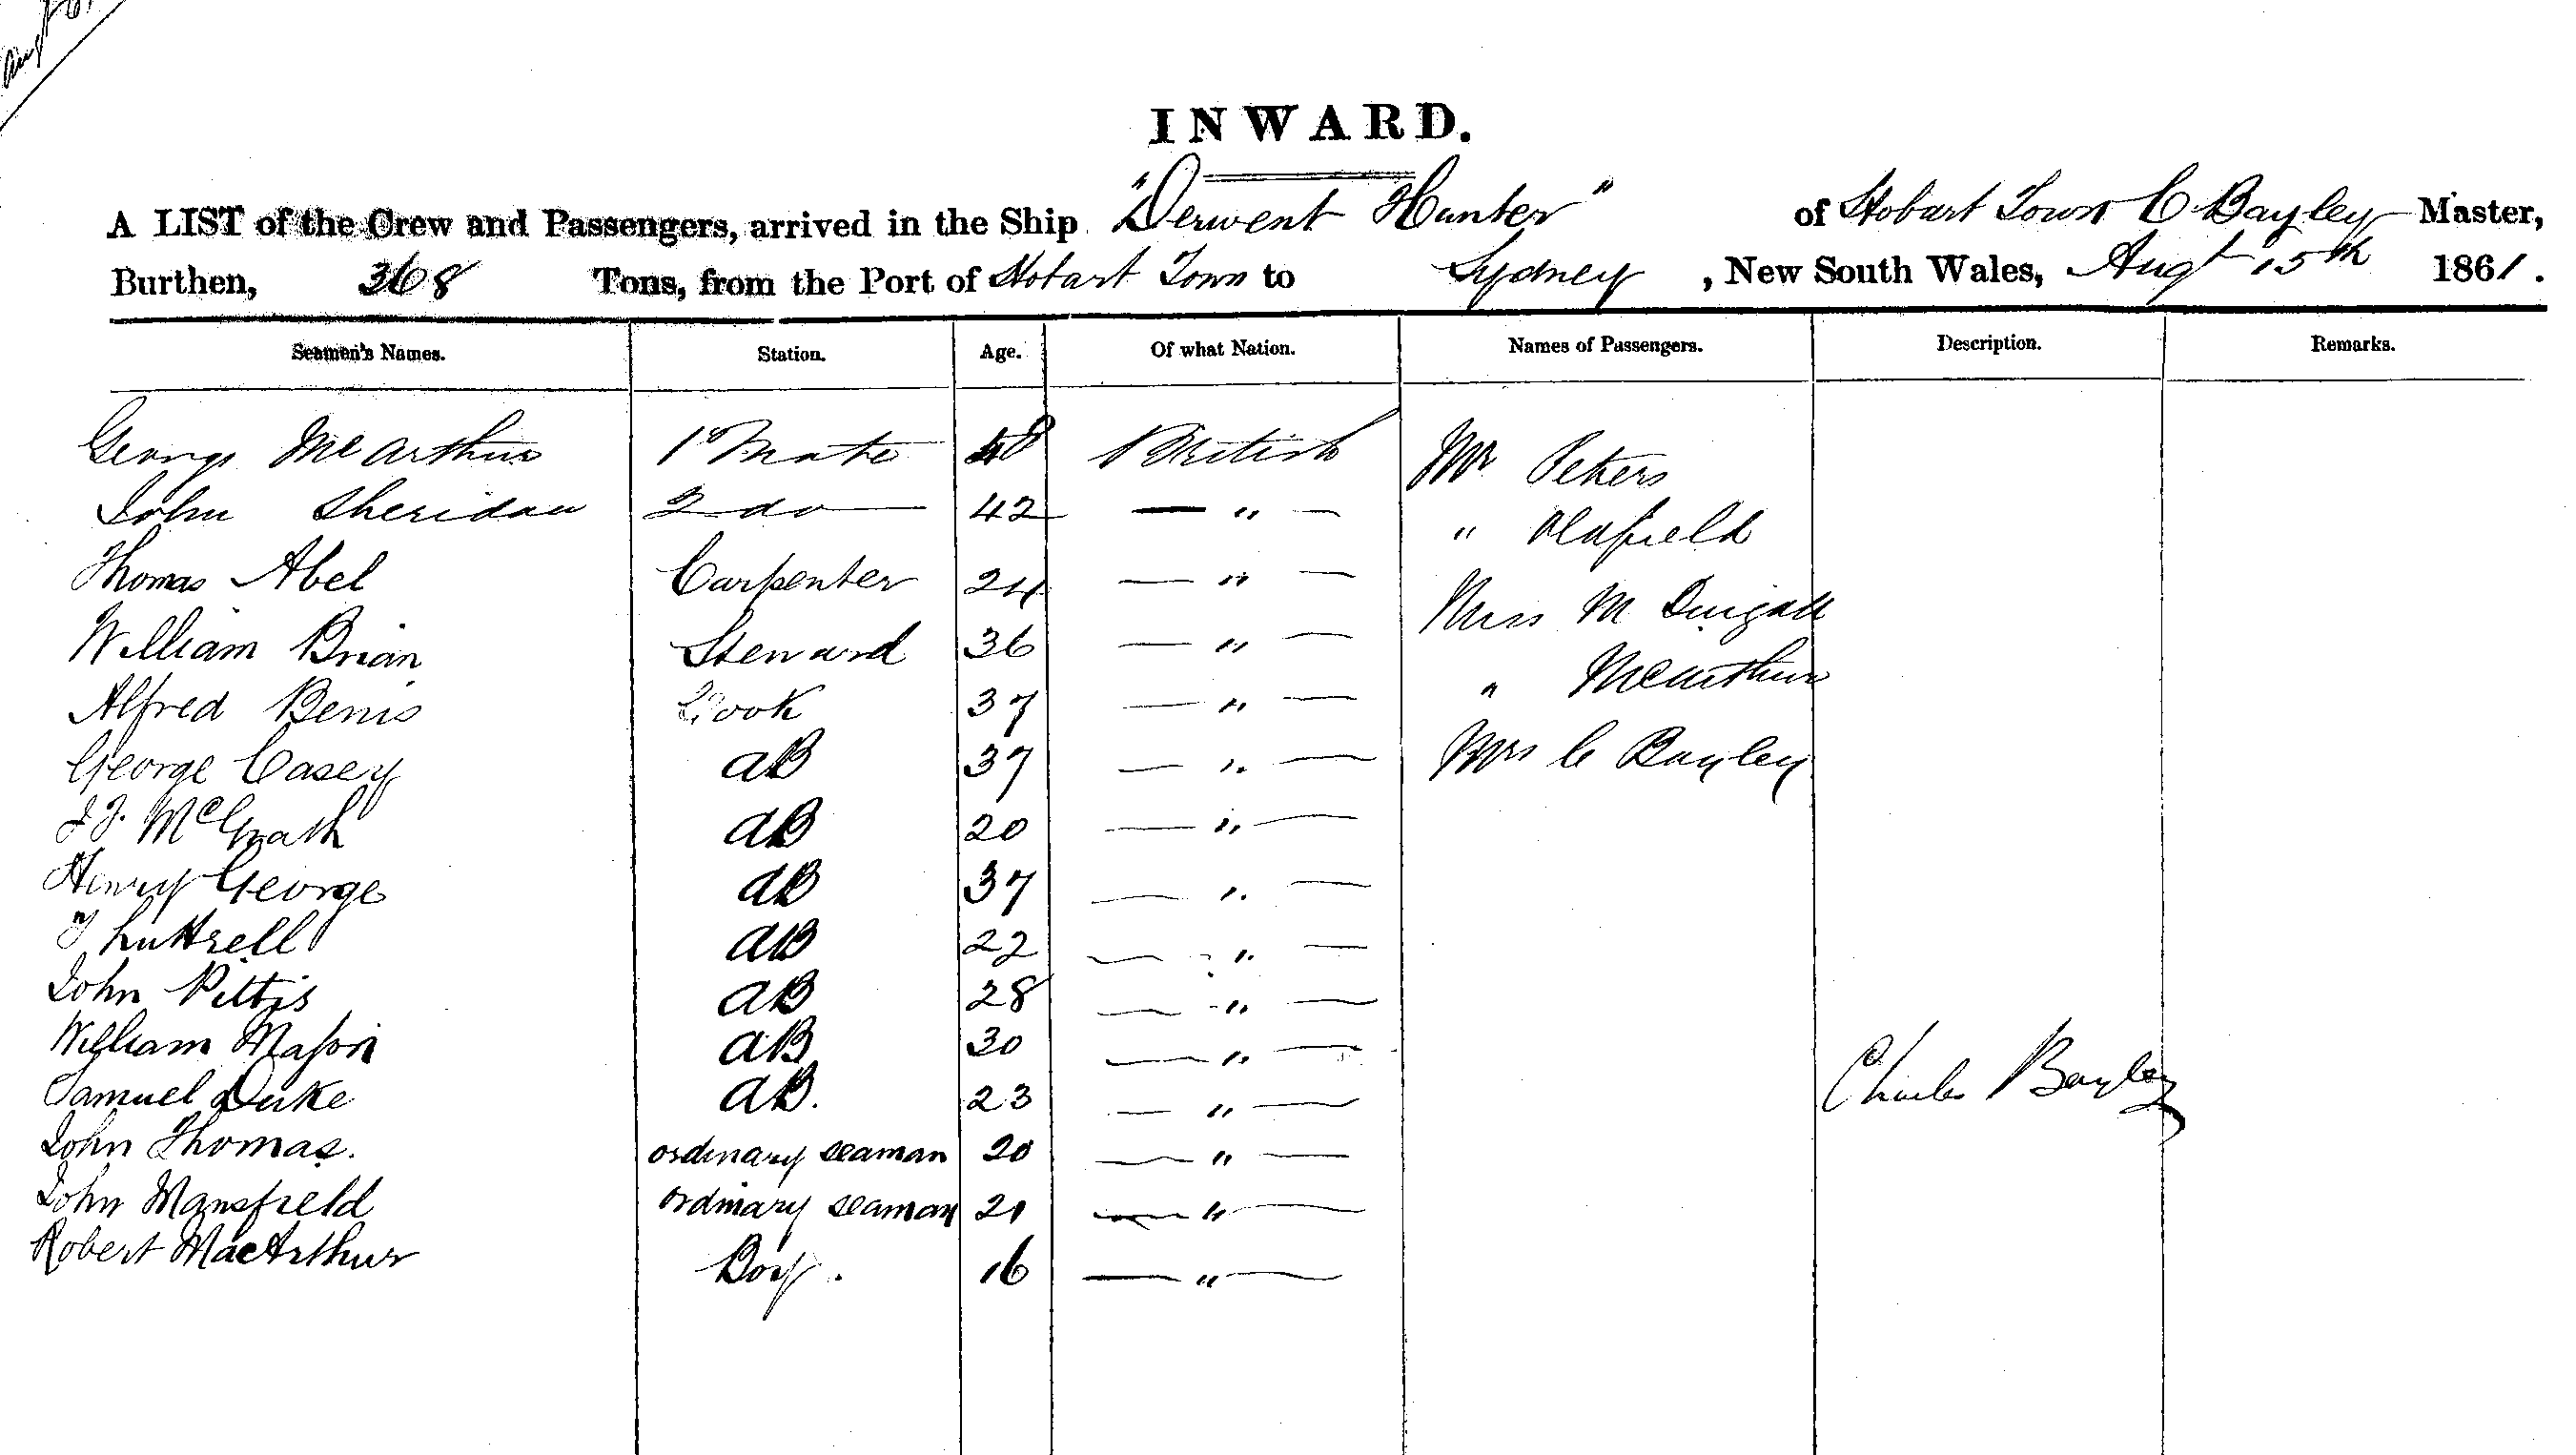 INWARD.
A LIST of the Crew and Passengers, arrived in the Ship "Derwent Hunter" of Hobart Town C Bayley Master,
Burthen, 368 Tons, from the Port of Hobart Town to Sydney, New South Wales, Augt 15th 1861.
Seamen's Names. Station. Age. Of what Nation. Names of Passengers. Description. Remarks.
George McArthur 1 Mate British Mr Peters
John Sheridan 2 do 42 — " — " Oldfield
Thomas Abel Carpenter 24 — " — Miss M
William Brian Steward 36 — " — " McArthur
Alfred Benis Cook 37 — " —
George Casey aB 37 — " — Mrs C Bayley
J J. McGrath aB 20 — " —
Henry George aB 37 — " —
T Luttrell aB 22 — " —
John Pittis aB 28 — " —
William Mason aB 30 — " —
Samuel Duke aB. 23 — " — Charles Bayley
John Thomas. ordinary seaman 20 — " —
John Mansfield ordinary seaman 21 — " —
Robert MacArthur Boy. 16 — " —